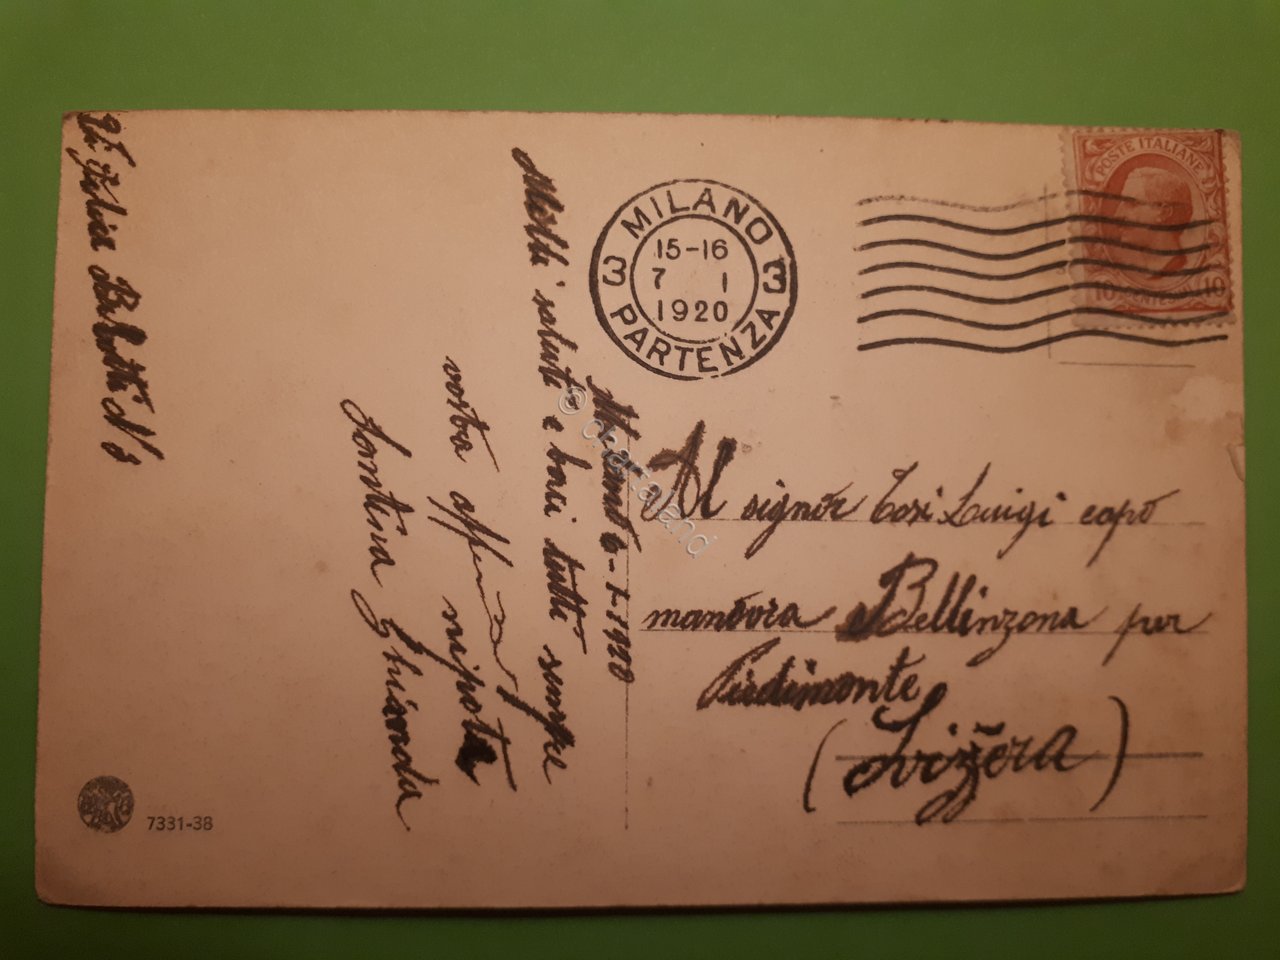 Milano 6-1-1920
Molti saluti e baci tutti sempre
vostra nipote
Santina Ghianda
N 3
7331-38
MILANO
15-16
7 1
1920
3 3
PARTENZA
POSTE ITALIANE
10 10
Al signor Tosi Luigi capo
manovra Bellinzona per
Piedimonte
(Svizzera)
© chartaland